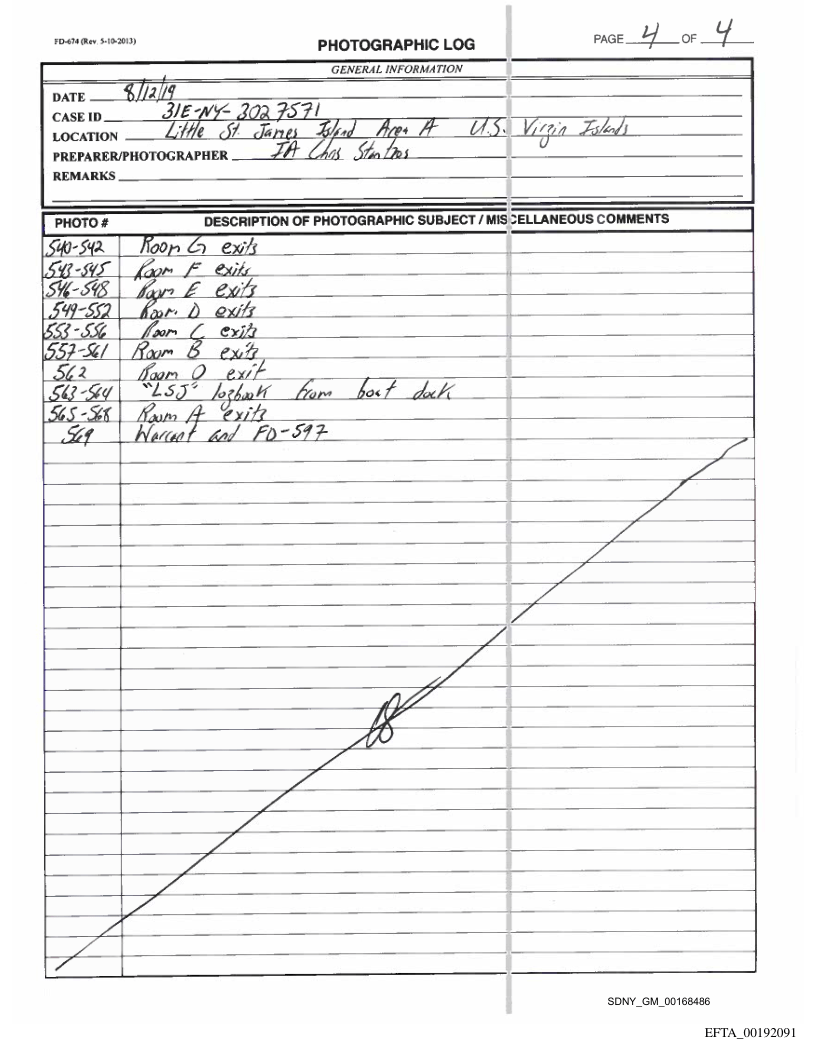 FD-674 (Rev. 5-10-2013)
PHOTOGRAPHIC LOG
PAGE 4 OF 4
GENERAL INFORMATION
DATE 8/12/19
CASE ID 31E-NY-3027571
LOCATION Little St. James Island Area A U.S. Virgin Islands
PREPARER/PHOTOGRAPHER IA Chris
REMARKS
PHOTO # DESCRIPTION OF PHOTOGRAPHIC SUBJECT / MISCELLANEOUS COMMENTS
540-542 Room G exits
543-545 Room F exits
546-548 Room E exits
549-552 Room D exits
553-556 Room C exits
557-561 Room B exits
562 Room O exit
563-564 "LSJ" logbook from boat dock
565-568 Room A exits
569 Warrant and FD-597
SDNY_GM_00168486
EFTA_00192091